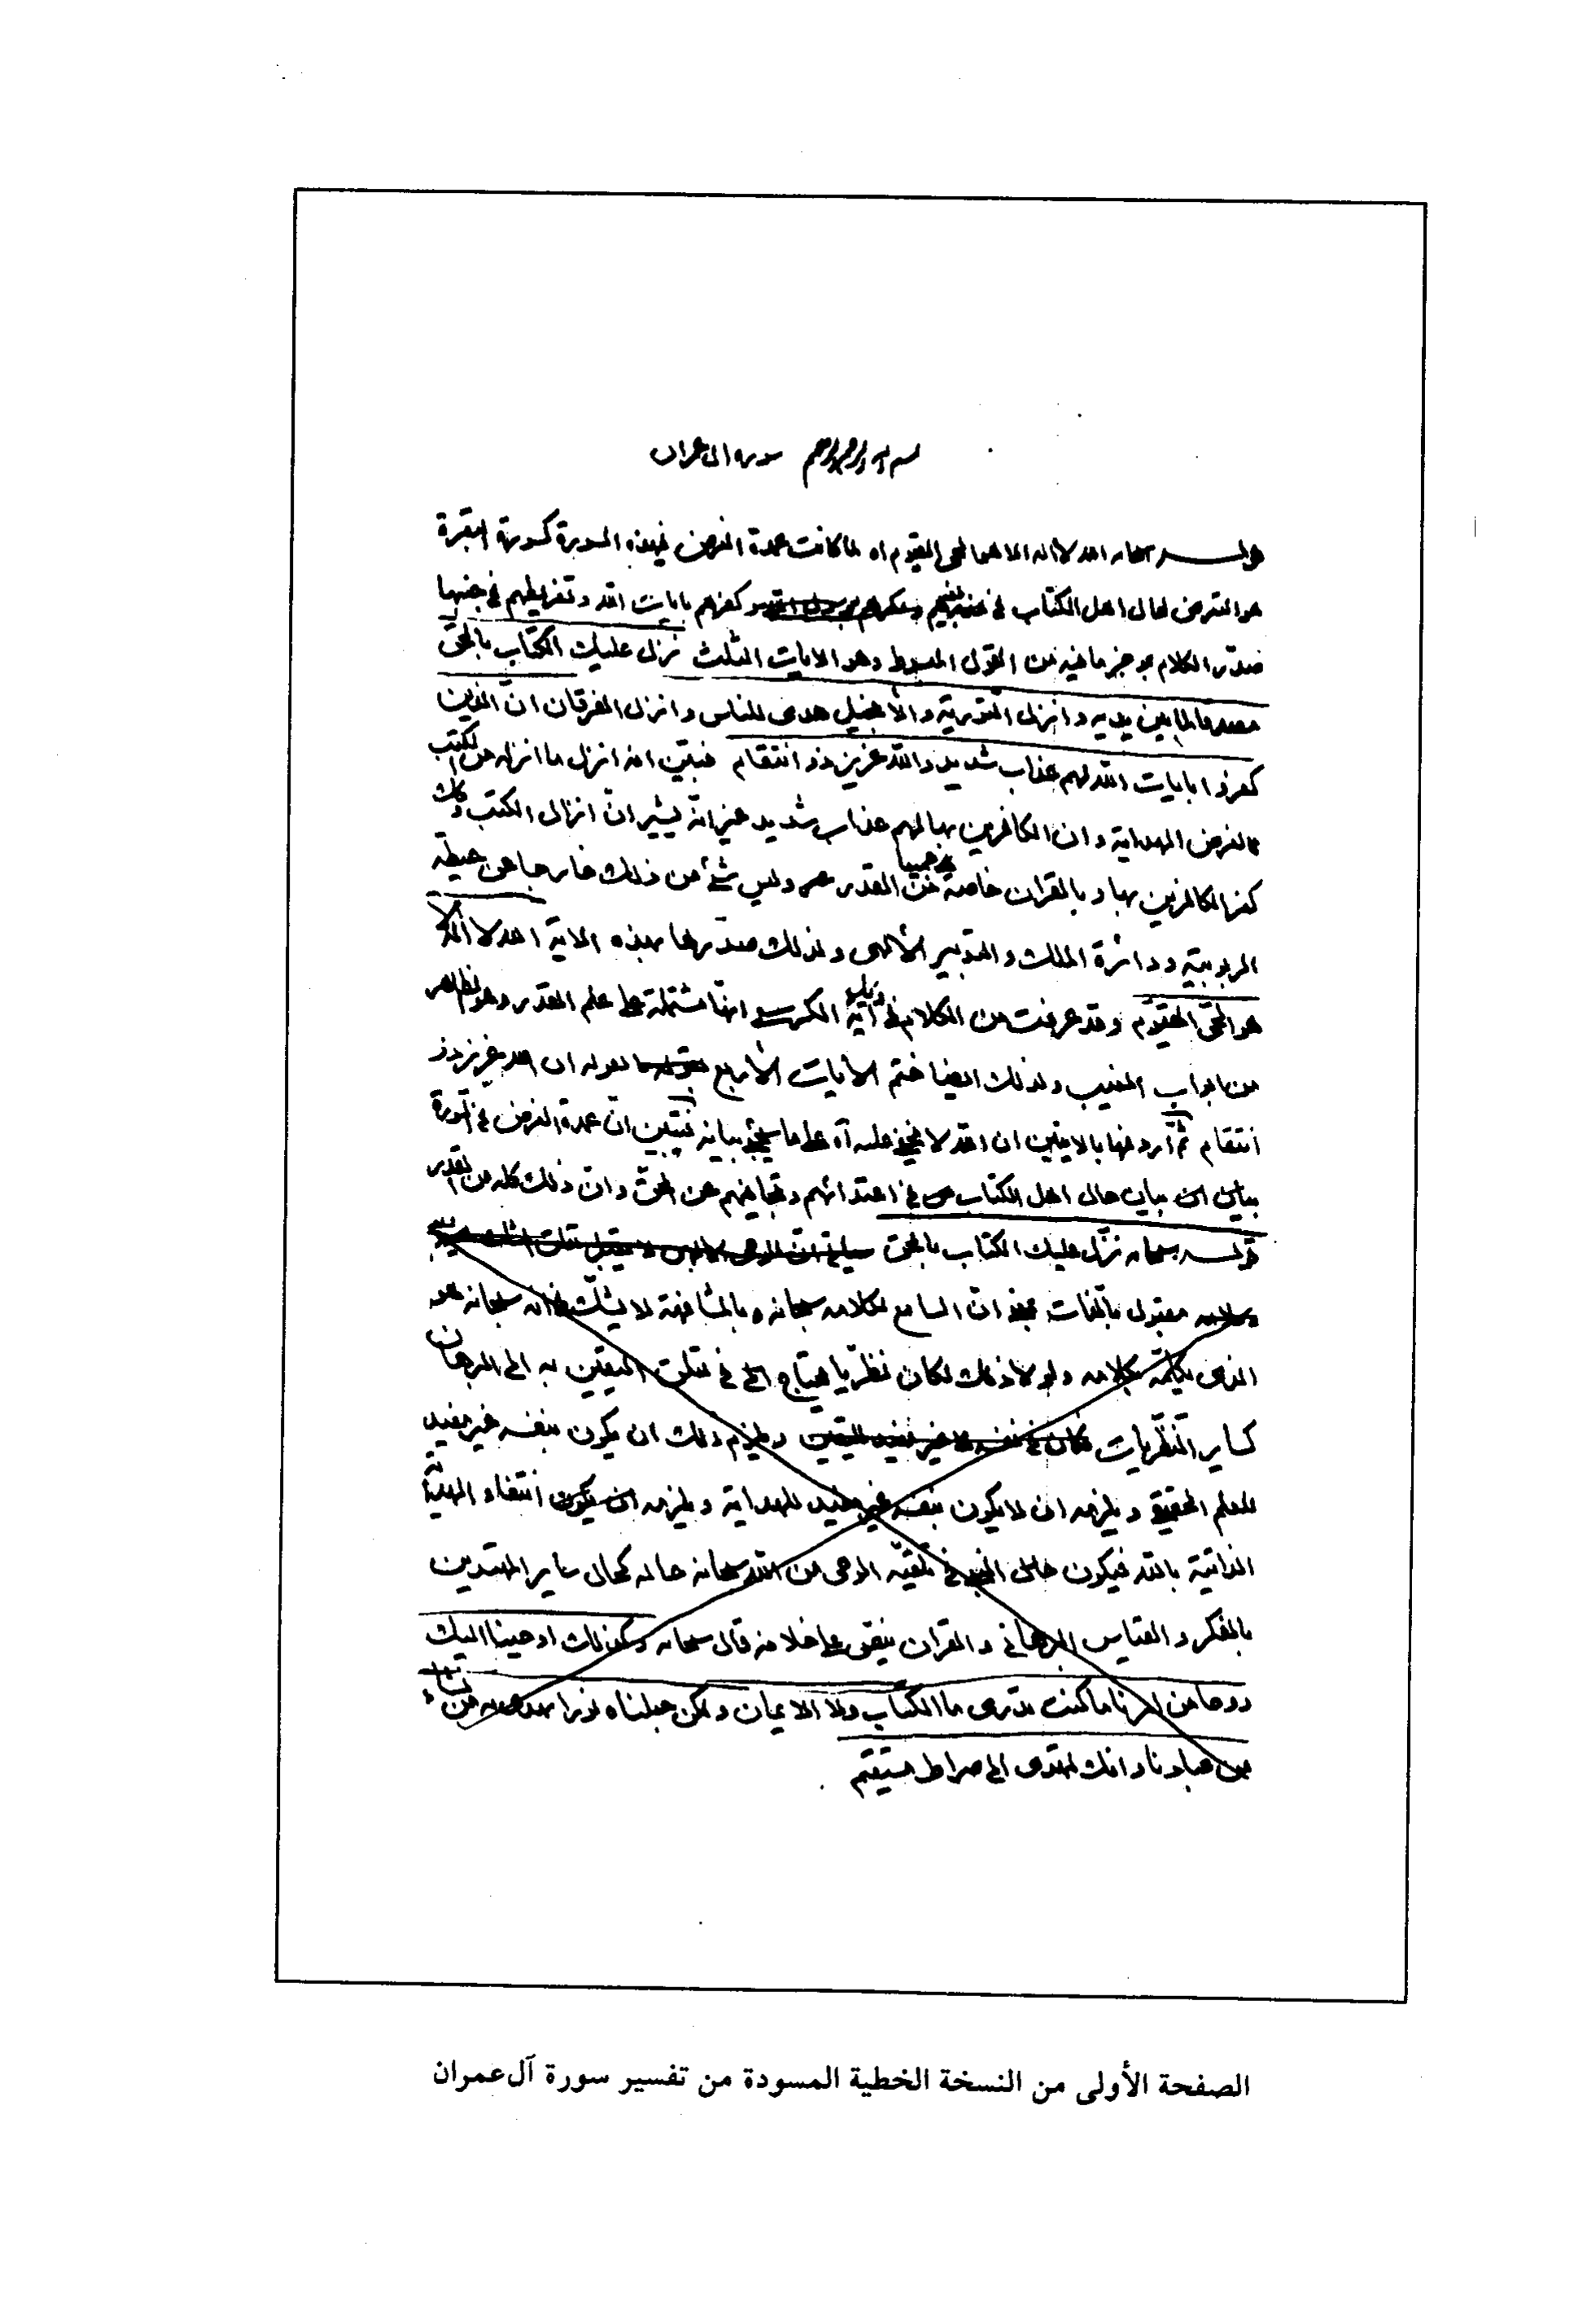 بسم الله الرحمن الرحيم سوره ال عمران
قولـــه سبحانه الله لا اله الا هو الحي القيوم اه لما كانت عمدة الغرض في هذه السورة كسورة البقرة
هو التعرض لحال اهل الكتاب في وكفرهم بايات الله وتفريطهم في جنبها
صدّر الكلام بوجيز ما فيه من القول المبسوط وهو الايات الثلث نزل عليك الكتاب بالحق
مصدقا لما بين يديه وانزل التورية والأنجيل هدى للناس وانزل الفرقان انّ الذين
كفروا بايات الله لهم عذاب شديد والله عزيز ذو انتقام فبيّن انه انزل ما انزله من الكتب
لغرض الهداية وان الكافرين بها لهم عذاب شديد غير انّه يشير انّ انزال الكتب وكذلك
كفر الكافرين بها وبالقران خاصة من القدر وليس شئ من ذلك خارجا عن حيطة
الربوبية ودائرة الملك والتدبير الألهى ولذلك صدّرها بهذه الاية الله لا اله الا
هو الحىّ القيّوم وقد عرفت من الكلام في ذيل آية الكرسي انها مشتملة على علم القدر وهو لظاهر
من ابواب الغيب ولذلك ايضا ختم الايات الأربع بقوله ان الله عزيز ذو
انتقام ثمّ أردفها بالايتين ان الله لا يخفى عليه آه على ما سيجئ بيانه فتبيّن انّ عمدة الغرض في السورة
بيان حال اهل الكتاب في اعتدائهم وتجافيهم عن الحق وانّ ذلك كله من القدر
قولـــه سبحانه نزّل عليك الكتاب بالحق
مقبول بالذات انّ السامع لكلامه سبحانه وبالمشافهة لا يشكّ في انه سبحانه هو
الذى يكلّمه بكلامه ولو لا ذلك لكان نظريّا يحتاج في تلقى اليقين به الى البرهان
كساير النظريات ويلزم ذلك ان يكون بنفسه غير مفيد
للعلم الحقيقي ويلزمه ان لا يكون بنفسه مفيد للهداية ويلزمه انتفاء الهداية
الذاتية بالله فيكون حال النبي في تلقيّه الوحى من الله سبحانه حاله كحال ساير المهتدين
بالفكر والقياس البرهاني والقران ينص على خلافه قال سبحانه وكذلك اوحينا اليك
روحا من امرنا ما كنت تدرى ما الكتاب ولا الايمان ولكن جعلناه نورا نهدى به من نشاء
من عبادنا وانك لتهدى الى صراط مستقيم
الصفحة الأولى من النسخة الخطية المسودة من تفسير سورة آل‌عمران